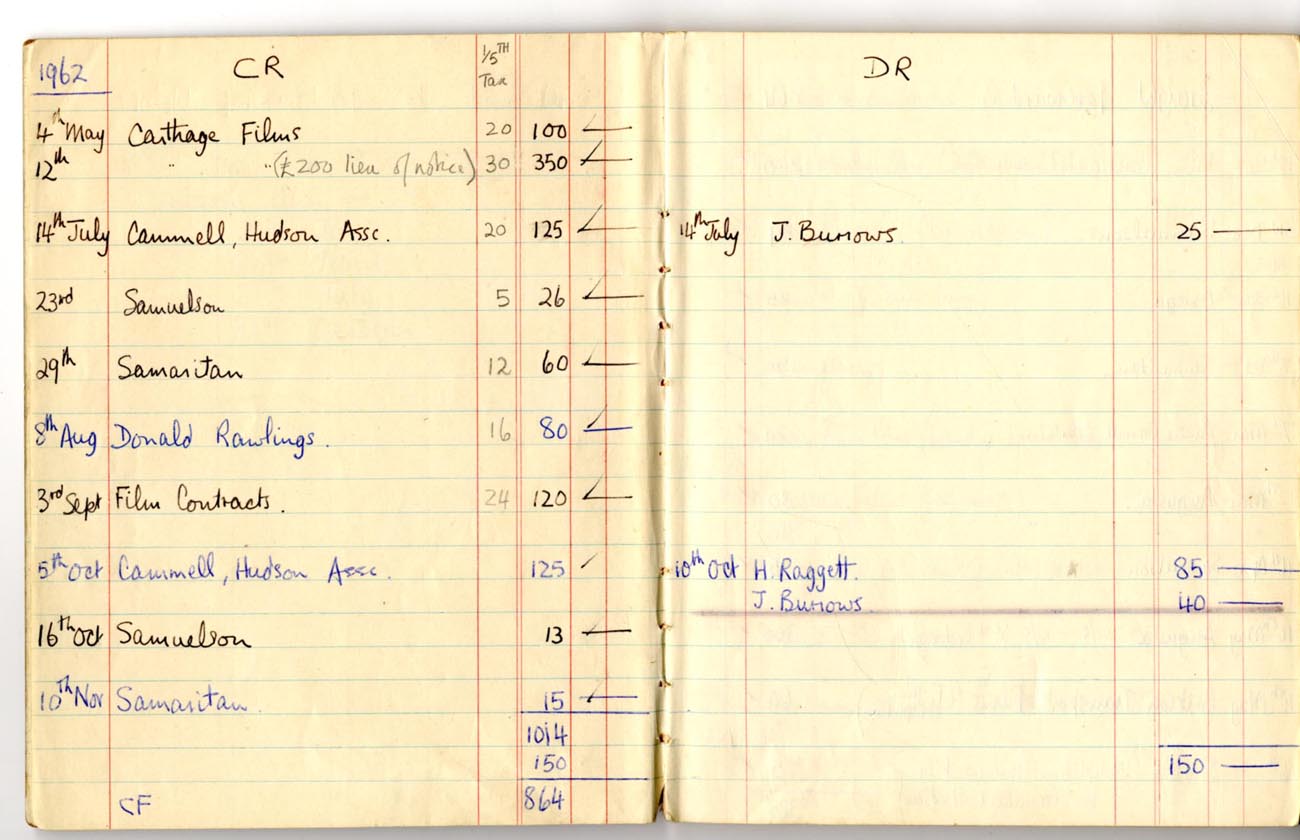 1962 CR 1/5TH Tax
4th May Carthage Films 20 100
12th " " (£200 lieu of notice) 30 350
14th July Cammell, Hudson Assc. 20 125
23rd Samuelson 5 26
29th Samaritan 12 60
8th Aug Donald Rawlings. 16 80
3rd Sept Film Contracts. 24 120
5th Oct Cammell, Hudson Assc. 125
16th Oct Samuelson 13
10th Nov Samaritan. 15
1014
150
CF 864
DR
14th July J. Burrows. 25
10th Oct H. Raggett. 85
J. Burrows. 40
150